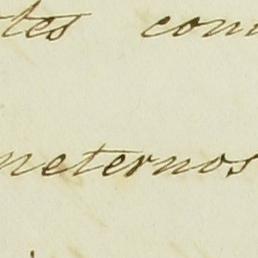 tes com
neternos